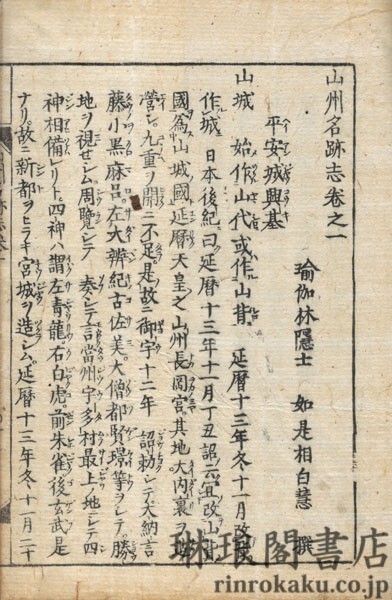 山州名跡志卷之一
瑜伽林隱士 如是相白慧 撰
平安城興基
山城 始作山代或作山背 延暦十三年冬十一月改
作城 日本後紀曰延暦十三年十一月丁丑詔云宜改山背
國為山城國延暦天皇之山州長岡宮其地大内裏ヲ
營シ九重ヲ開ニ不足是故ニ御宇十二年 詔勅シテ大納言
藤小黒麻呂左大辨紀古佐美大僧都賢璟等ヲシテ勝
地ヲ視セシム周覽シテ 奏シテ言當州宇多村最上ノ地ニシテ四
神相備レリト四神ハ謂左青龍右白虎前朱雀後玄武是
ナリ故ニ新都ヲヒラキ宮城ヲ造シム延暦十三年冬十一月二十
琳琅閣書店
rinrokaku.co.jp